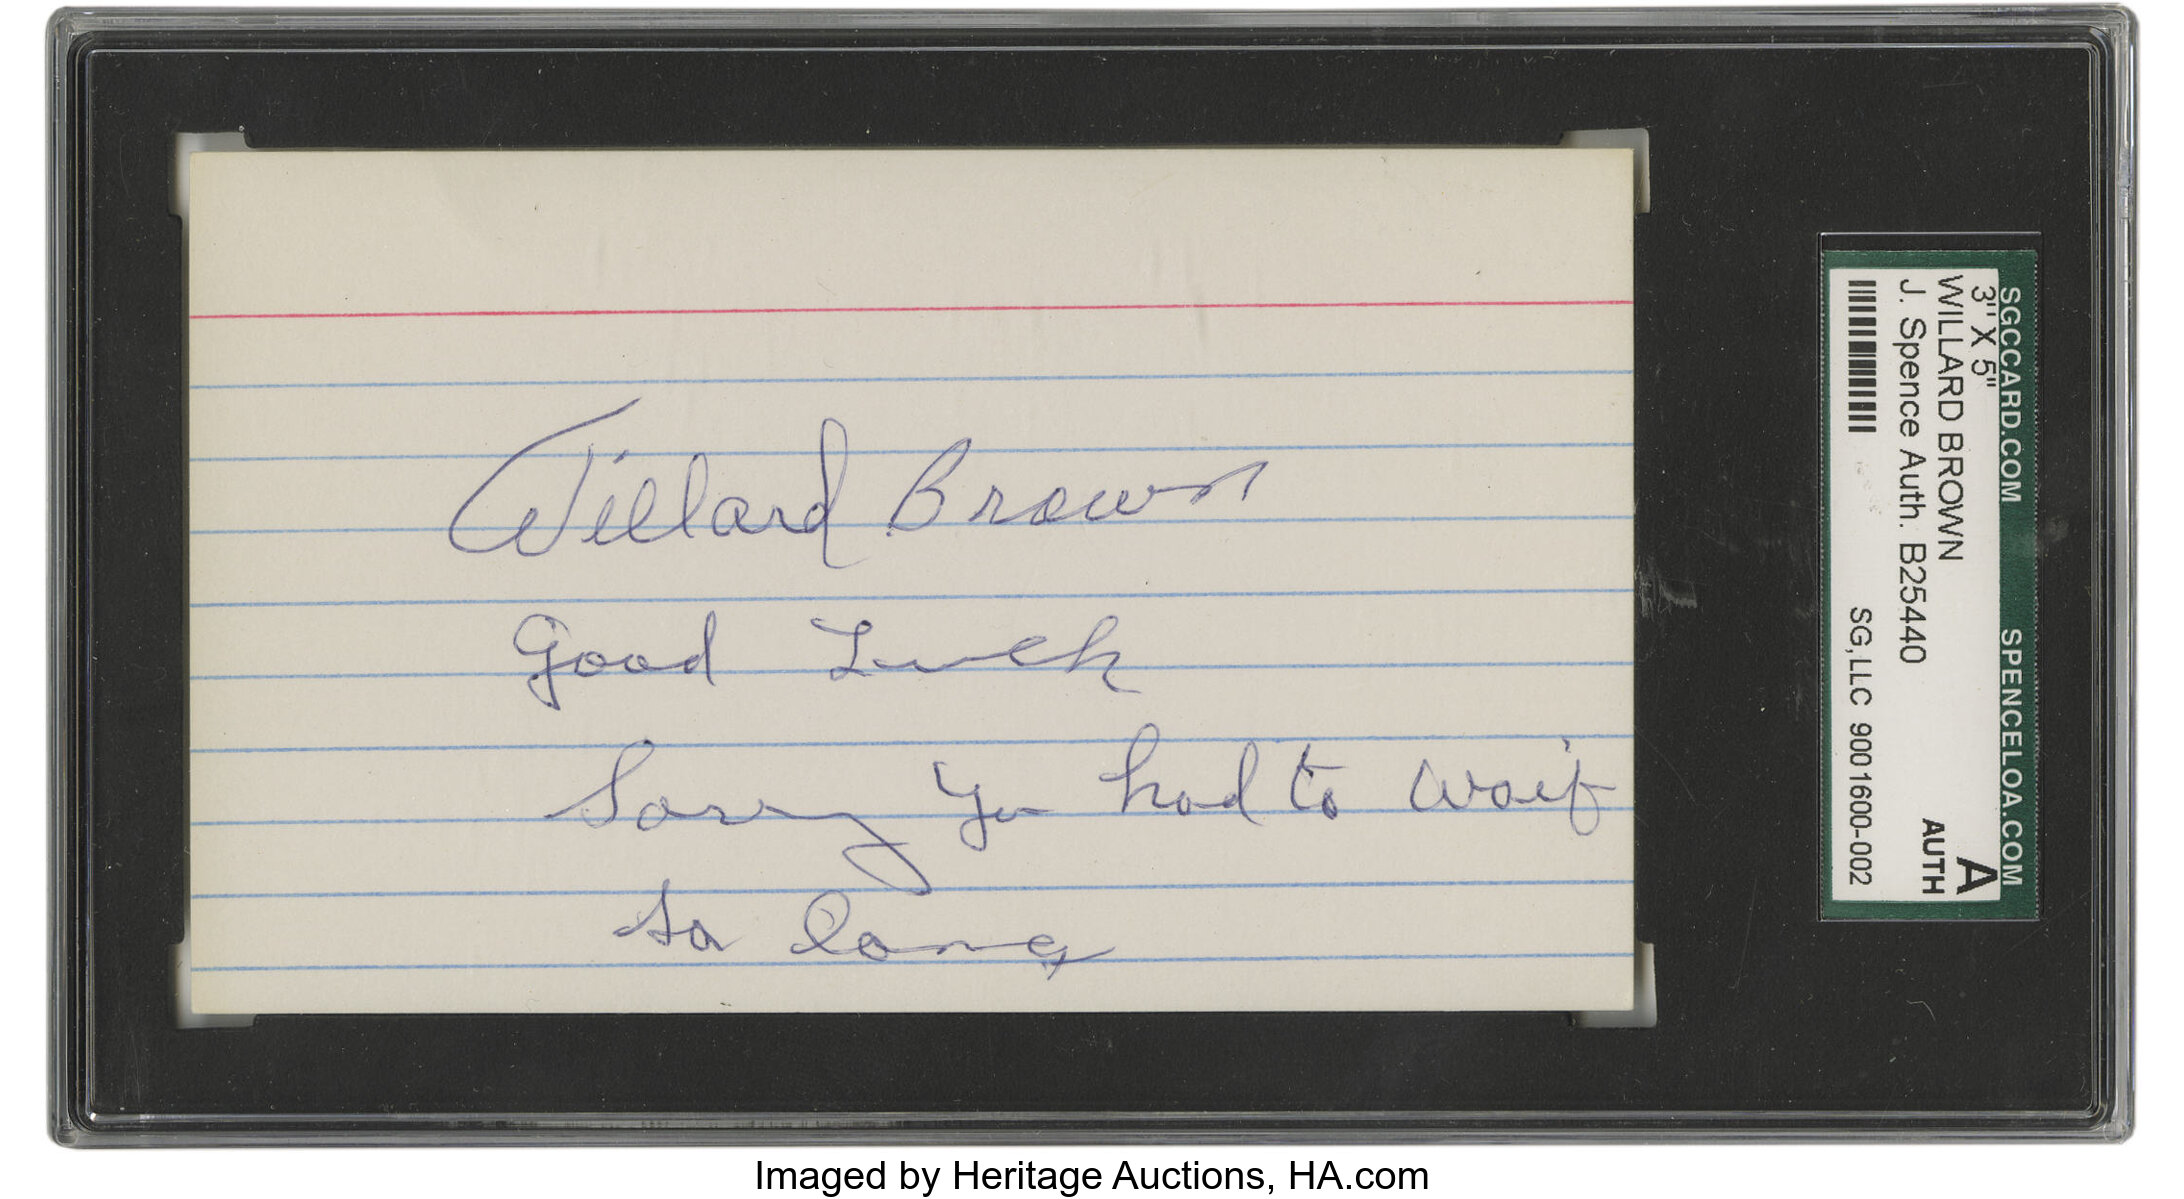 Willard Brown
Good Luck
Sorry You had to wait
so long
SGCCARD.COM SPENCELOA.COM
3" X 5"
WILLARD BROWN
J. Spence Auth. B25440
A
AUTH
SG, LLC 9001600-002
Imaged by Heritage Auctions, HA.com